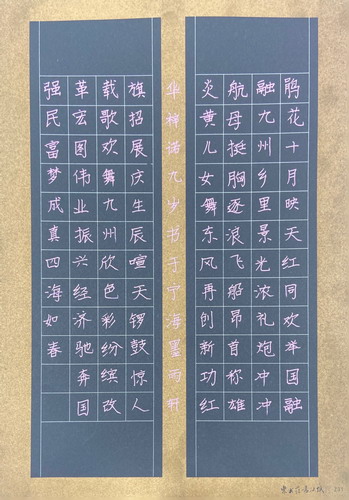 鹃花十月映天红同欢举国融
融九州乡里景光浓礼炮冲冲
航母挺胸逐浪飞船昂首称雄
炎黄儿女舞东风再创新功红
旗招展庆生辰喧天锣鼓惊人
载歌欢舞九州欣色彩纷缤改
革宏图伟业振兴经济驰奔国
强民富梦成真四海如春
华梓诺九岁书于宁海墨雨轩